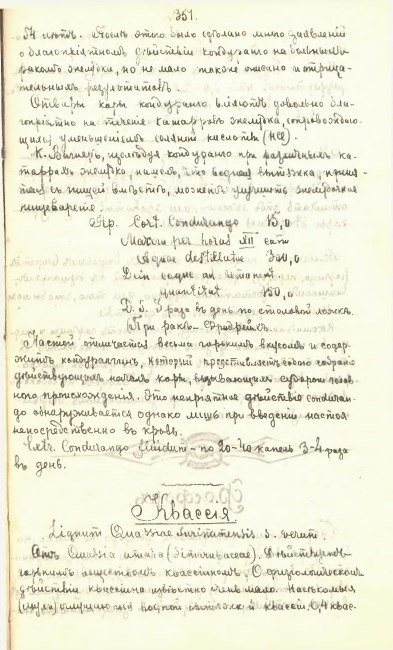 351.
54 лѣтъ. Послѣ этого было сдѣлано много заявленій
о благопріятномъ дѣйствіи кондуранго на больныхъ
ракомъ желудка, но не мало также описано и отрица-
тельныхъ результатовъ.
Отвары коры кондуранго вліяютъ довольно бла-
гопріятно на теченіе катарровъ желудка, сопровождаю-
щихся уменьшеніемъ соляной кислоты (HCl).
К. Вагнеръ, изслѣдуя кондуранго при различныхъ ка-
таррахъ желудка, нашелъ, что водная вытяжка, приня-
тая съ пищей вмѣстѣ, можетъ улучшить желудочное
пищевареніе.
Пр. Cort. Condurango 15,0
Macera per horas XII cum
Aquae destillatae 300,0
Dein coque ad remanent
quantitat 150,0
D. S. 3 раза въ день по столовой ложкѣ.
При ракѣ - Фридрейхъ.
Настой отличается весьма горькимъ вкусомъ и содер-
житъ кондурангинъ, который представляетъ собою собраніе
дѣйствующихъ началъ коры, вызывающихъ судороги голов-
ного происхожденія. Это непріятное дѣйствіе conduran-
go обнаруживается однако лишь при введеніи настоя
непосредственно въ кровь.
Extr. Condurango fluidum - по 20-40 капель 3-4 раза
въ день.
Квассія
Lignum Quassiae surinamensis s. verum.
Отъ Quassia amara (Simarubaceae). Дѣйствуетъ
горькимъ веществомъ квассіиномъ. О физіологическомъ
дѣйствіи квассіина извѣстно очень мало. Насѣкомыя
(мухи) отъ водной вытяжки квассіи. 0,4 квас-